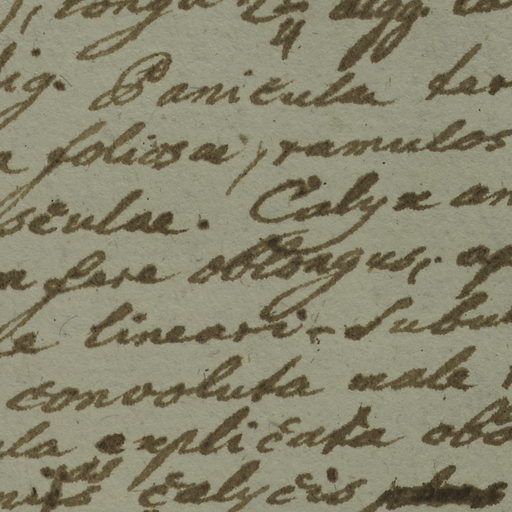 longa 2 3/4 digg. la
lig. Panicula ter
a foliosae, ramulos
sculae. Calyx an
m fere oblongus, ap
e lineari-subul
convoluta male
ula explicata obo
calycis